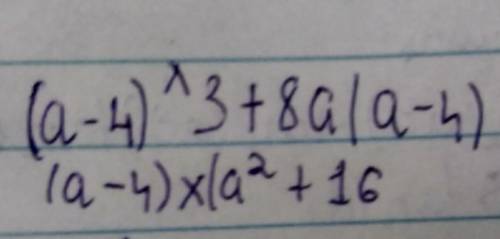 (a-4)^3+8a(a-4)
(a-4)x(a²+16